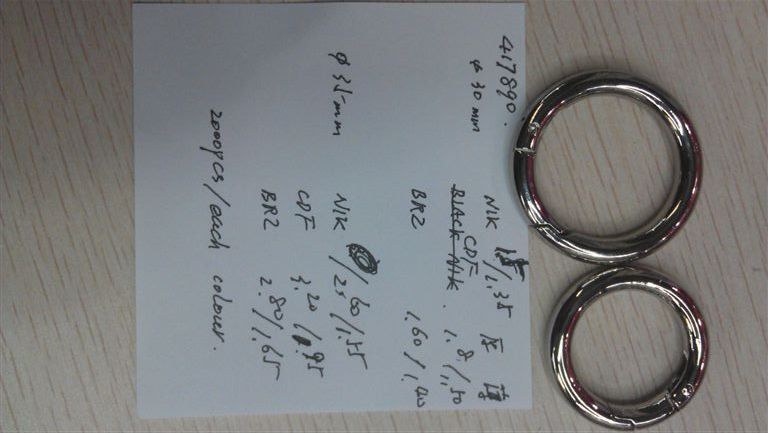 417890.
φ 30mm
NIK /1.35 厚 薄
CDF
BLACK NIK. 1.8/1.50
BRZ 1.60/1.40
φ 35mm
NIK /1.55
CDF 3.20/1.95
BRZ 2.80/1.65
2000pcs/each colour.